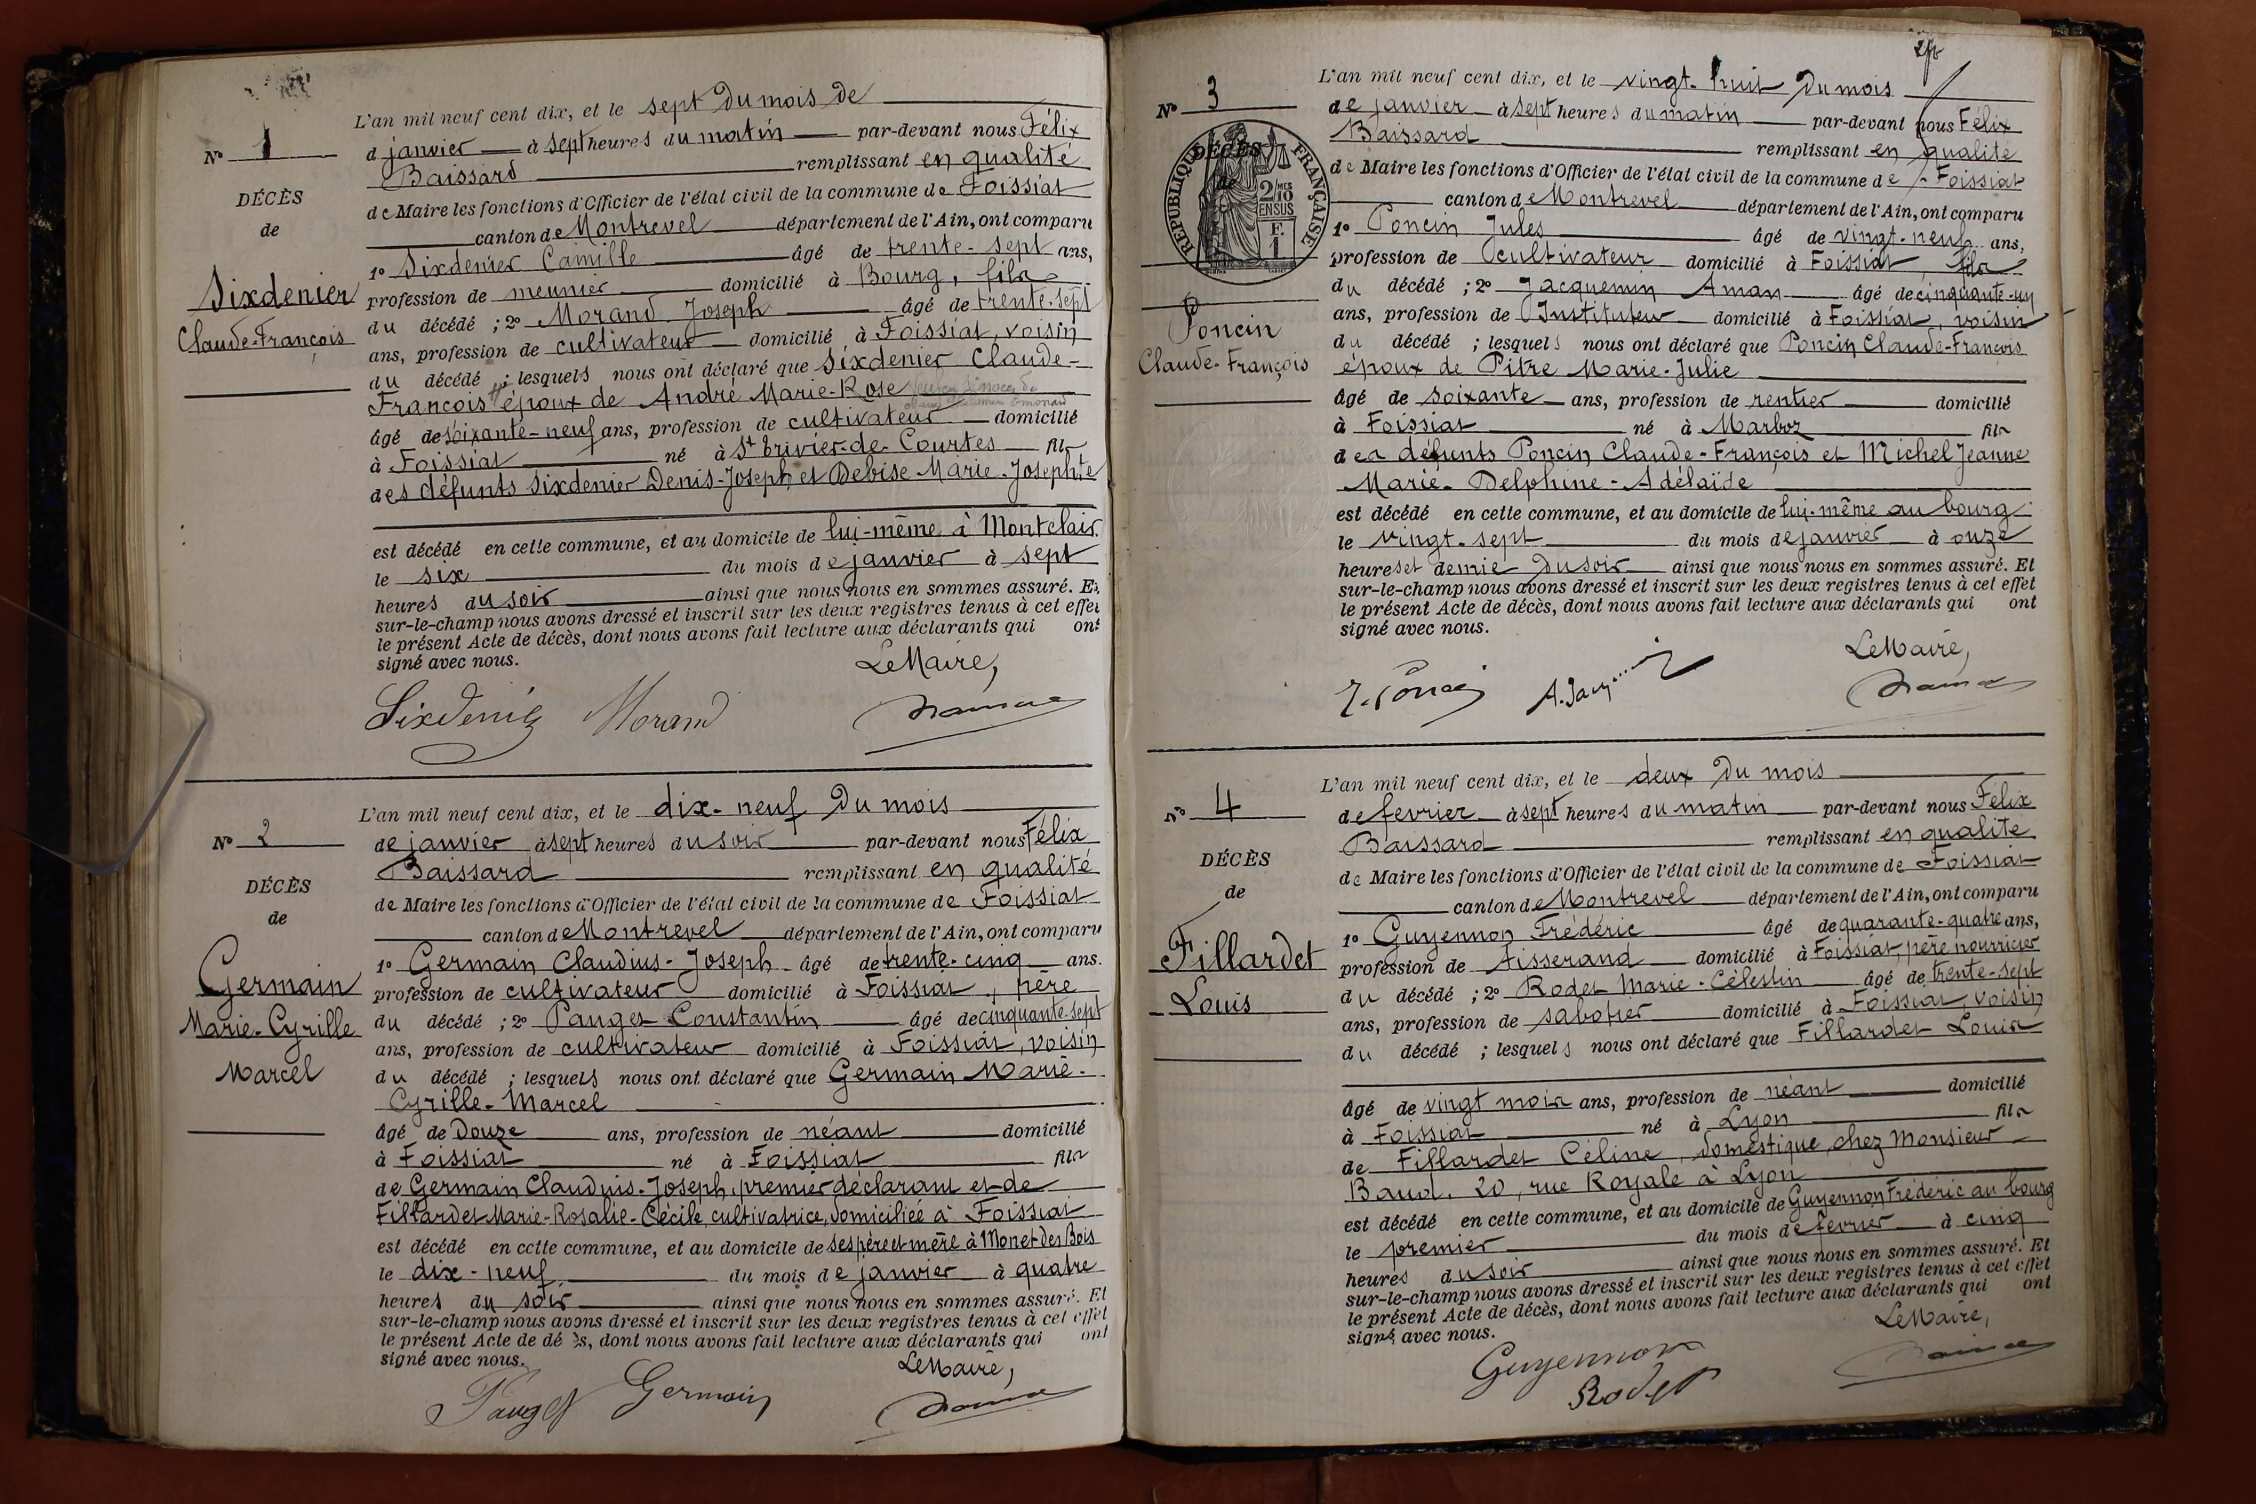 N° 1
DÉCÈS
de
Sixdenier
Claude-François
L'an mil neuf cent dix, et le sept du mois de
d janvier à sept heures du matin par-devant nous Félix
Baissard remplissant en qualité
de Maire les fonctions d'Officier de l'état civil de la commune de Foissiat
canton de Montrevel département de l'Ain, ont comparu
1° Sixdenier Camille âgé de trente-sept ans,
profession de meunier domicilié à Bourg, fils
du décédé ; 2° Morand Joseph âgé de trente-sept
ans, profession de cultivateur domicilié à Foissiat, voisin
du décédé ; lesquels nous ont déclaré que Sixdenier Claude-
François époux de André Marie-Rose
âgé de soixante-neuf ans, profession de cultivateur domicilié
à Foissiat né à St Trivier-de-Courtes fils
des défunts Sixdenier Denis-Joseph et Debise Marie-Josephte
est décédé en cette commune, et au domicile de lui-même à Montclair
le six du mois de janvier à sept
heures du soir ainsi que nous nous en sommes assuré. Et
sur-le-champ nous avons dressé et inscrit sur les deux registres tenus à cet effet
le présent Acte de décès, dont nous avons fait lecture aux déclarants qui ont
signé avec nous.
Le Maire,
Sixdenier Morand
N° 2
DÉCÈS
de
Germain
Marie-Cyrille
Marcel
L'an mil neuf cent dix, et le dix-neuf du mois
de janvier à sept heures du soir par-devant nous Félix
Baissard remplissant en qualité
de Maire les fonctions d'Officier de l'état civil de la commune de Foissiat
canton de Montrevel département de l'Ain, ont comparu
1° Germain Claudius-Joseph âgé de trente-cinq ans.
profession de cultivateur domicilié à Foissiat, père
du décédé ; 2° Pauget Constantin âgé de cinquante-sept
ans, profession de cultivateur domicilié à Foissiat, voisin
du décédé ; lesquels nous ont déclaré que Germain Marie-
Cyrille-Marcel
âgé de Douze ans, profession de néant domicilié
à Foissiat né à Foissiat fils
de Germain Claudius-Joseph, premier déclarant et de
Fillardet Marie-Rosalie-Cécile, cultivatrice, domiciliée à Foissiat
est décédé en cette commune, et au domicile de ses père et mère à Monet des Bois
le dix-neuf du mois de janvier à quatre
heures du soir ainsi que nous nous en sommes assuré. Et
sur-le-champ nous avons dressé et inscrit sur les deux registres tenus à cet effet
le présent Acte de dé ès, dont nous avons fait lecture aux déclarants qui ont
signé avec nous.
Le Maire,
Pauget Germain
N° 3
DÉCÈS
de
RÉPUBLIQUE FRANÇAISE
2/10 MES
EN SUS
F.
1
Poncin
Claude-François
L'an mil neuf cent dix, et le vingt-huit du mois
de janvier à sept heures du matin par-devant nous Félix
Baissard remplissant en qualité
de Maire les fonctions d'Officier de l'état civil de la commune de Foissiat
canton de Montrevel département de l'Ain, ont comparu
1° Poncin Jules âgé de vingt-neuf ans,
profession de cultivateur domicilié à Foissiat, fils
du décédé ; 2° Jacquemin Aman âgé de cinquante-un
ans, profession de Instituteur domicilié à Foissiat, voisin
du décédé ; lesquels nous ont déclaré que Poncin Claude-François
époux de Pitre Marie-Julie
âgé de soixante ans, profession de rentier domicilié
à Foissiat né à Marboz fils
des défunts Poncin Claude-François et Michel Jeanne
Marie-Delphine-Adélaïde
est décédé en cette commune, et au domicile de lui-même au bourg
le vingt-sept du mois de janvier à onze
heures et demie du soir ainsi que nous nous en sommes assuré. Et
sur-le-champ nous avons dressé et inscrit sur les deux registres tenus à cet effet
le présent Acte de décès, dont nous avons fait lecture aux déclarants qui ont
signé avec nous.
Le Maire,
J. Poncin
N° 4
DÉCÈS
de
Fillardet
Louis
L'an mil neuf cent dix, et le deux du mois
de fevrier à sept heures du matin par-devant nous Félix
Baissard remplissant en qualité
de Maire les fonctions d'Officier de l'état civil de la commune de Foissiat
canton de Montrevel département de l'Ain, ont comparu
1° Guyennon Frédéric âgé de quarante-quatre ans,
profession de tisserand domicilié à Foissiat, père nourricier
du décédé ; 2° Rodet Marie-Célestin âgé de trente-sept
ans, profession de sabotier domicilié à Foissiat, voisin
du décédé ; lesquels nous ont déclaré que Fillardet Louis
âgé de vingt mois ans, profession de néant domicilié
à Foissiat né à Lyon fils
de Fillardet Céline, domestique chez Monsieur
Baud, 20, rue Royale à Lyon
est décédé en cette commune, et au domicile de Guyennon Frédéric au bourg
le premier du mois de fevrier à cinq
heures du soir ainsi que nous nous en sommes assuré. Et
sur-le-champ nous avons dressé et inscrit sur les deux registres tenus à cet effet
le présent Acte de décès, dont nous avons fait lecture aux déclarants qui ont
signé avec nous.
Le Maire,
Guyennon
Rodet